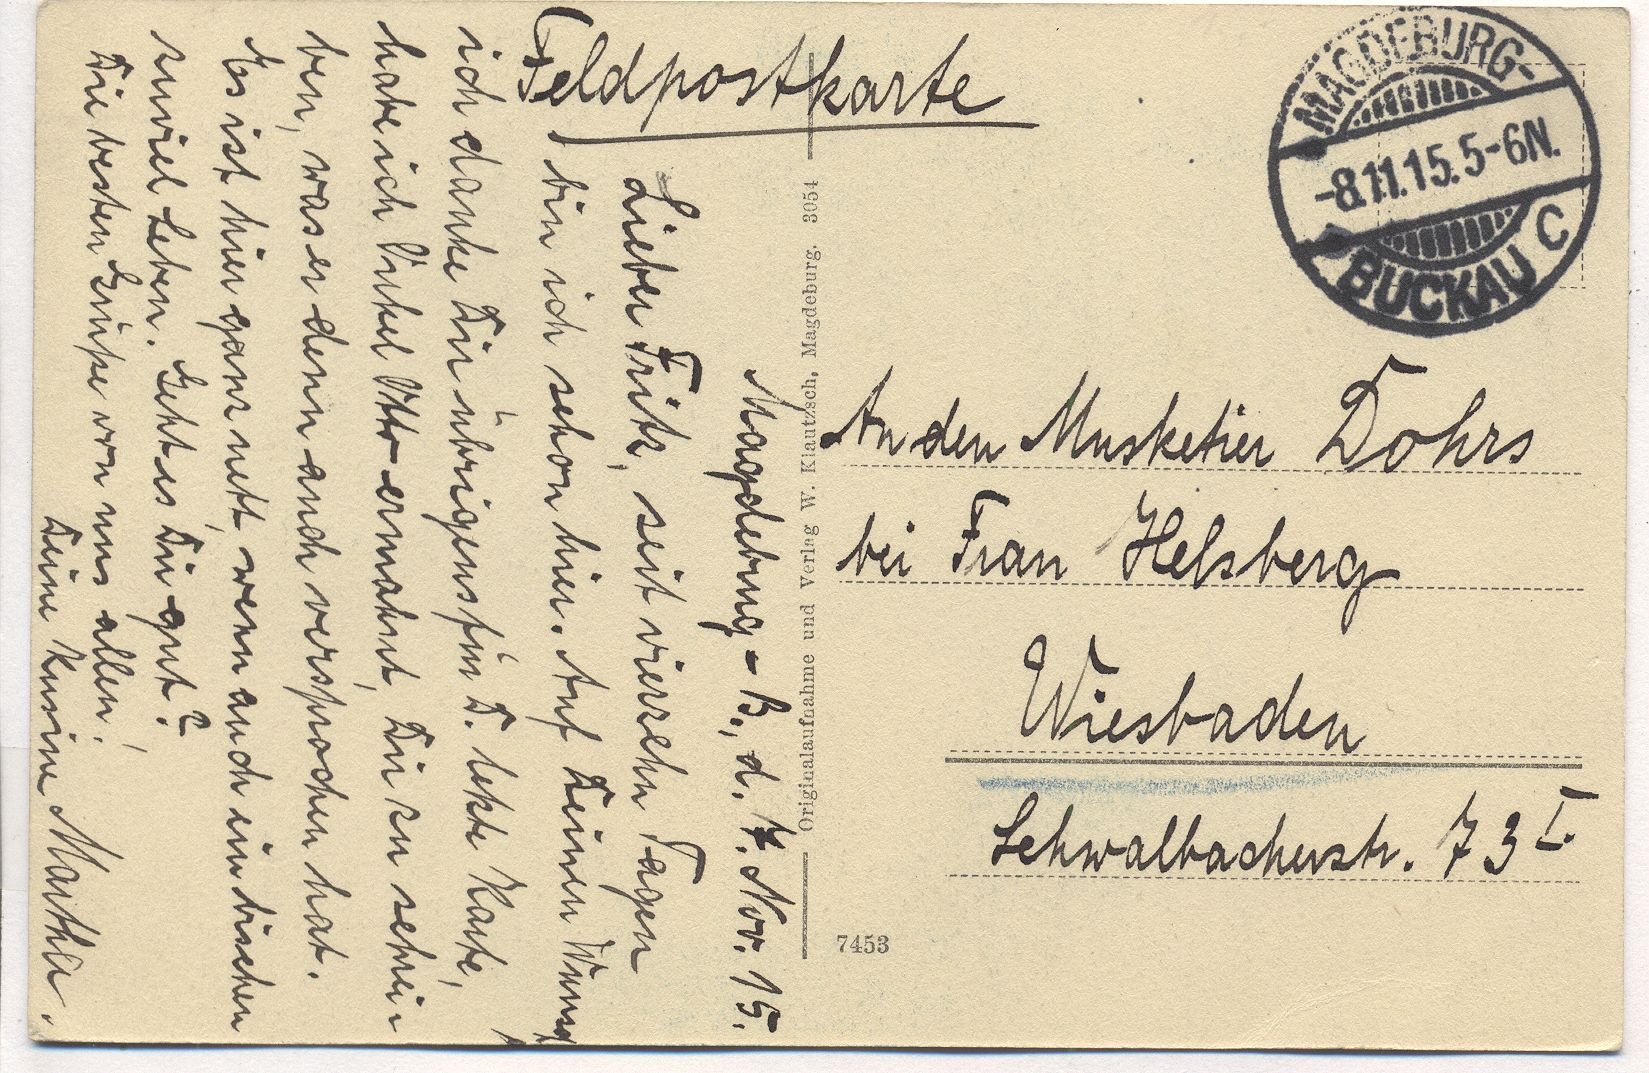 Feldpostkarte
MAGDEBURG-
-8.11.15.5-6N.
BUCKAU C
Magdeburg-B., d. 7. Nov. 15.
Lieber Fritz, seit vierzehn Tagen
bin ich schon hier. Auf Deinen Wunsch
ich danke Dir übrigens für D. letzte Karte,
habe ich Onkel Otto ermahnt, Dir zu schrei-
ben, was er denn auch versprochen hat.
Es ist hier ganz nett, wenn auch ein bischen
zuviel Leben. Geht es Dir gut?
Die besten Grüße von uns allen!
Deine Kusine Martha.
Originalaufnahme und Verlag W. Klautzsch, Magdeburg. 3054
An den Musketier Dohrs
bei Frau Helsberg
Wiesbaden
Schwalbacherstr. 73 I.
7453